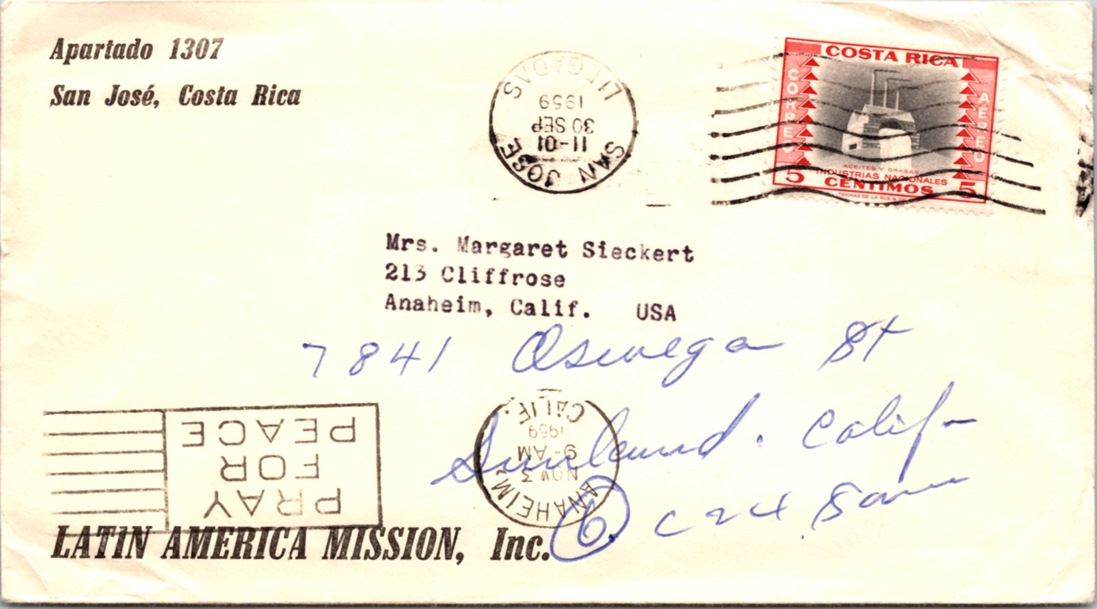 Apartado 1307
San José, Costa Rica
LLEGADAS
1959
30 SEP
11-01
SAN JOSE
COSTA RICA
CORREO
AEREO
ACEITES Y GRASAS
INDUSTRIAS NACIONALES
5 CENTIMOS 5
THOMAS DE LA RUE &
Mrs. Margaret Sieckert
213 Cliffrose
Anaheim, Calif. USA
7841 Oswego St
Sunland. Calif
6
PRAY
FOR
PEACE
ANAHEIM
NOV 3
9-AM
1959
CALIF.
LATIN AMERICA MISSION, Inc.